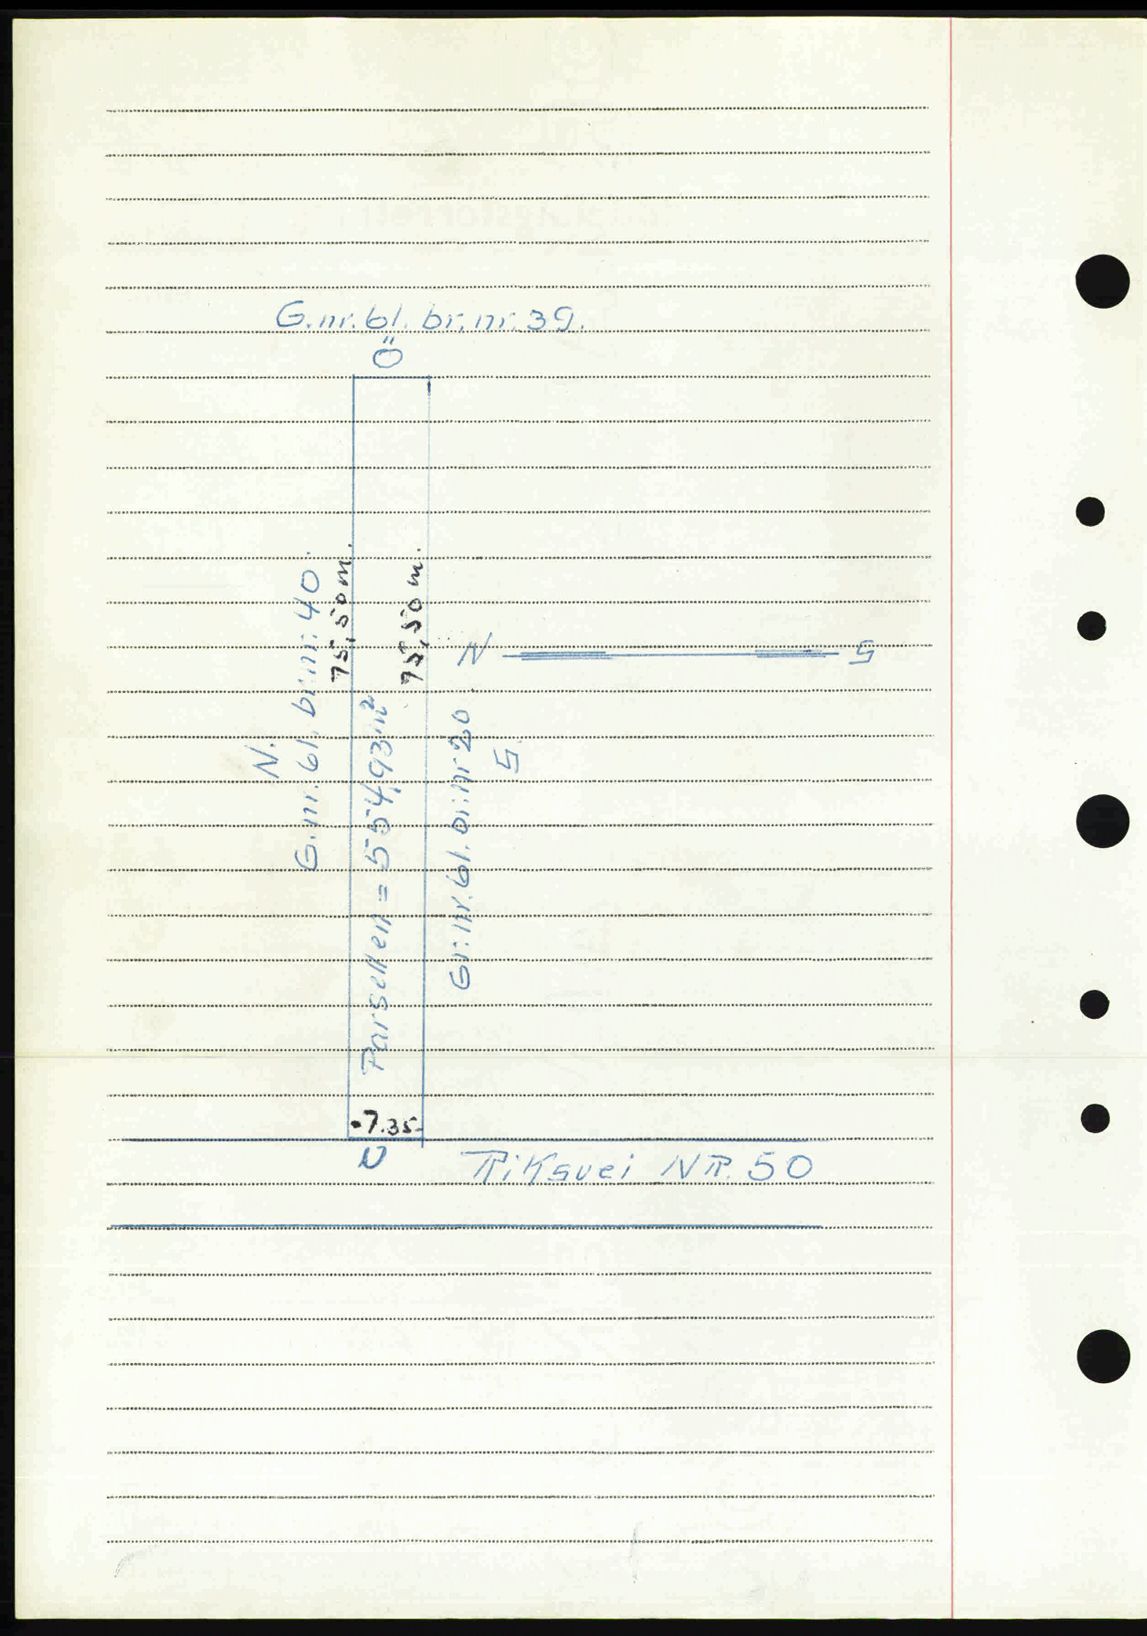 G.nr. 61. br. nr. 39.
Ö
N.
G.nr. 61. br. nr. 40.
75,50 m.
75,50 m.
Parsellen = 554,93 m²
Gr. nr. 61. br. nr 20
S.
N
S
7.35
V
Riksvei NR. 50